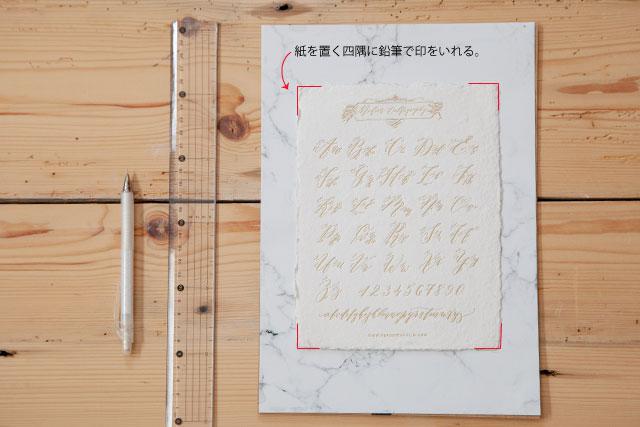 紙を置く四隅に鉛筆で印をいれる。
Modern Calligraphy
Aa Bb Cc Dd Ee
Ff Gg Hh Ii Jj
Kk Ll Mm Nn Oo
Pp Qq Rr Ss Tt
Uu Vv Ww Xx Yy
Zz 1234567890
abcdefghijklmnopqrstuvwxyz